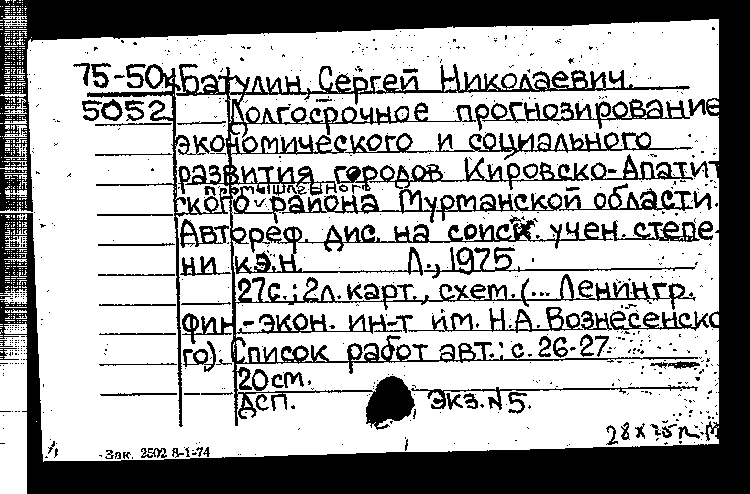 75-50к Батулин, Сергей Николаевич.
5052 Долгосрочное прогнозирование
экономического и социального
развития городов Кировско-Апатит
промышленного
ского ٧ района Мурманской области.
Автореф. дис. на соиск. учен. степе-
ни к.э.н. Л., 1975.
27с.; 2л. карт., схем. (... Ленингр.
фин.-экон. ин-т им. Н.А. Вознесенско
го). Список работ авт.: с. 26-27
20см.
ДСП. Экз. №5.
Зак. 2502 8-1-74